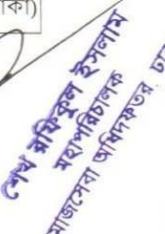 কা)
শেখ রফিকুল ইসলাম
মহাপরিচালক
মাজসেবা অধিদফতর